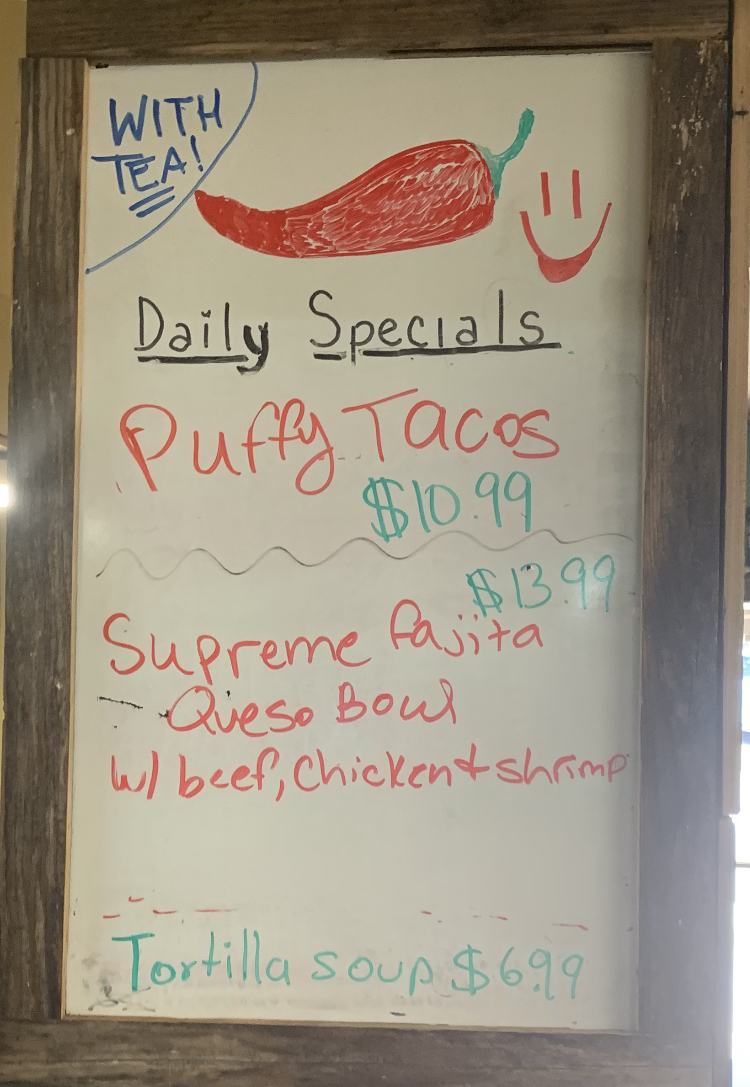 WITH
TEA!
Daily Specials
Puffy Tacos
$10.99
$13.99
Supreme fajita
Queso Bowl
w/ beef, chicken + shrimp
Tortilla soup $6.99